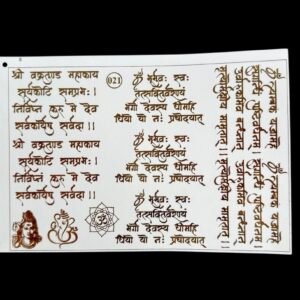 श्री वक्रतुण्ड महाकाय
सूर्यकोटि समप्रभः।
निर्विघ्नं कुरु मे देव
सर्वकार्येषु सर्वदा।।
श्री वक्रतुण्ड महाकाय
सूर्यकोटि समप्रभः।
निर्विघ्नं कुरु मे देव
सर्वकार्येषु सर्वदा।।
021
ॐ भूर्भुवः स्वः
तत्सवितुर्वरेण्यं
भर्गो देवस्य धीमहि
धियो यो नः प्रचोदयात्
ॐ भूर्भुवः स्वः
तत्सवितुर्वरेण्यं
भर्गो देवस्य धीमहि
धियो यो नः प्रचोदयात्
ॐ त्र्यम्बकं यजामहे
सुगन्धिं पुष्टिवर्धनम्।
उर्वारुकमिव बन्धनान्
मृत्योर्मुक्षीय मामृतात्।।
ॐ त्र्यम्बकं यजामहे
सुगन्धिं पुष्टिवर्धनम्।
उर्वारुकमिव बन्धनान्
मृत्योर्मुक्षीय मामृतात्।।